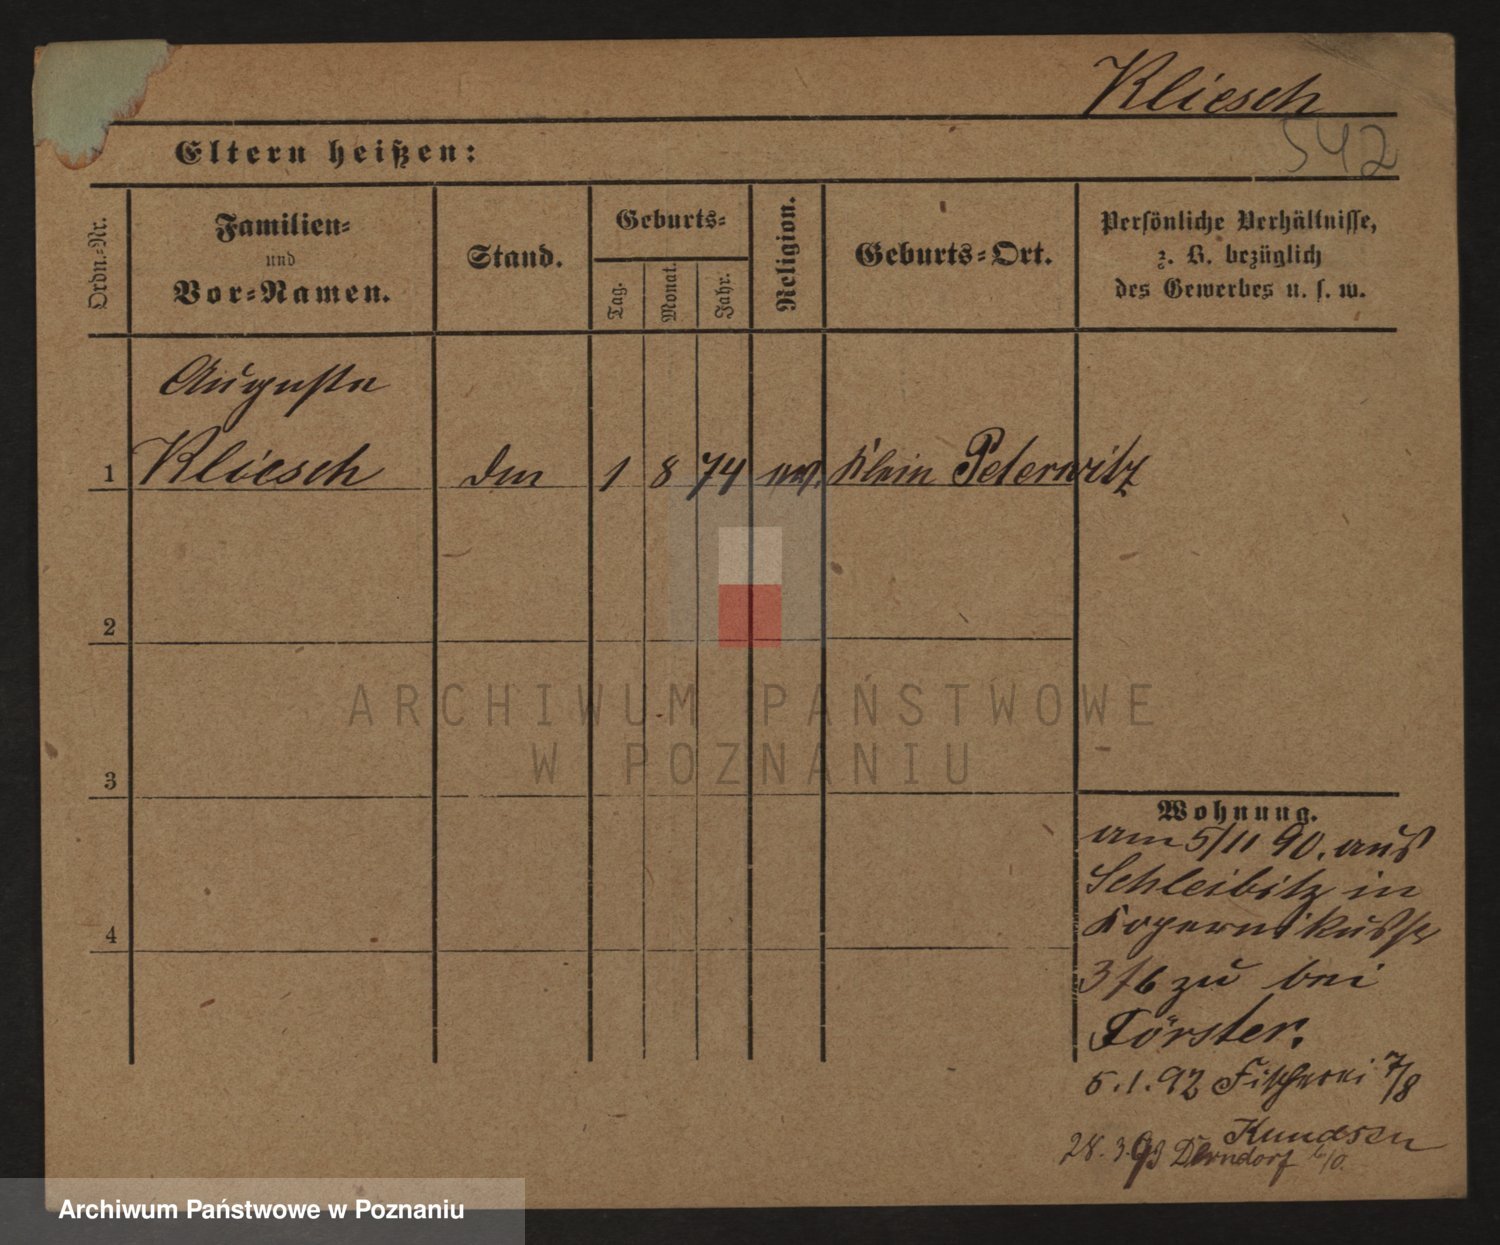 Kliesch
542
Eltern heißen:
Ordn.-Nr.
Familien-
und
Vor-Namen.
Stand.
Geburts-
Tag.
Monat.
Jahr.
Religion.
Geburts-Ort.
Persönliche Verhältnisse,
z. B. bezüglich
des Gewerbes u. s. w.
Auguste
1 Kliesch 1 8 74 ev. Klein Peterwitz
2
3
4
ARCHIWUM PAŃSTWOWE
W POZNANIU
Wohnung.
am 5/11 90. aus
Schleibitz in
Kopernikusstr
3/6 zu bei
Förster.
5.1.92 Fischerei 7/8
28.3.93
Archiwum Państwowe w Poznaniu